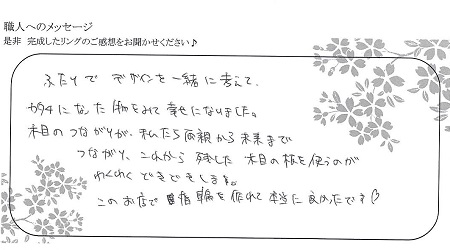 職人へのメッセージ
是非 完成したリングのご感想をお聞かせください♪
ふたりで デザインを一緒に考えて、
カタチになった物をみて 幸せになりました。
木目のつながりが、私たち両親から未来まで
つながり、これから 残した 木目の板を使うのが
わくわく できできします。
このお店で 指輪を作れて 本当に良かったです♡